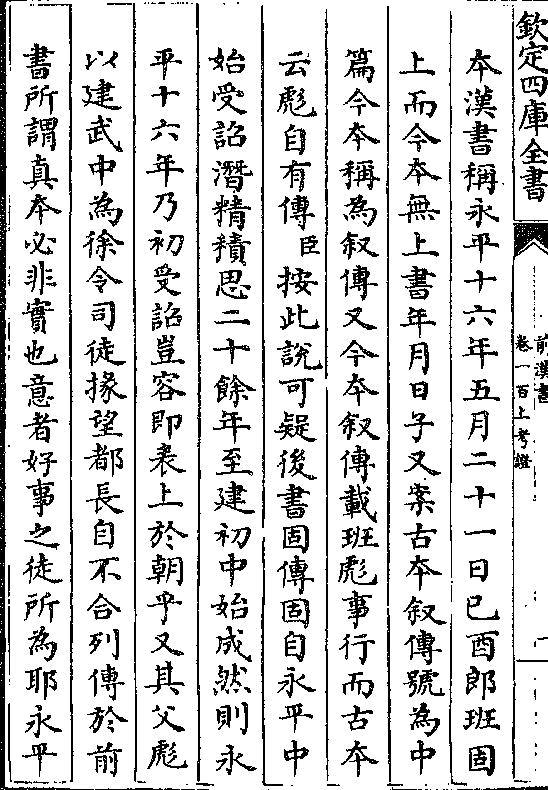 欽定四庫全書
前漢書
卷一百上考證
本漢書稱永平十六年五月二十一日己酉郎班固
上而今本無上書年月日子又案古本叙傳號為中
篇今本稱為叙傳又今本叙傳載班彪事行而古本
云彪自有傳臣按此說可疑後書固傳固自永平中
始受詔潛精積思二十餘年至建初中始成然則永
平十六年乃初受詔豈容即表上於朝乎又其父彪
以建武中為徐令司徒掾望都長自不合列傳於前
書所謂真本必非實也意者好事之徒所為耶永平